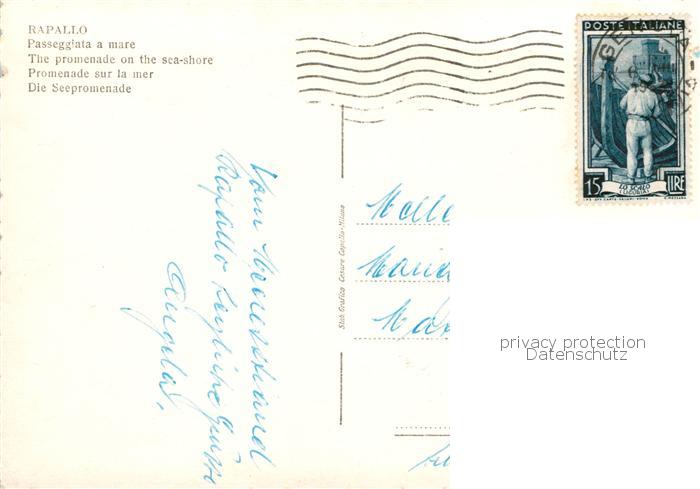 RAPALLO
Passeggiata a mare
The promenade on the sea-shore
Promenade sur la mer
Die Seepromenade
POSTE ITALIANE
LO SCALO
(LIGURIA)
15 LIRE
Vom Meeresstrand
Rapallo herzliche Grüsse
Angela.
Stab. Grafico Cesare Capello-Milano
privacy protection
Datenschutz